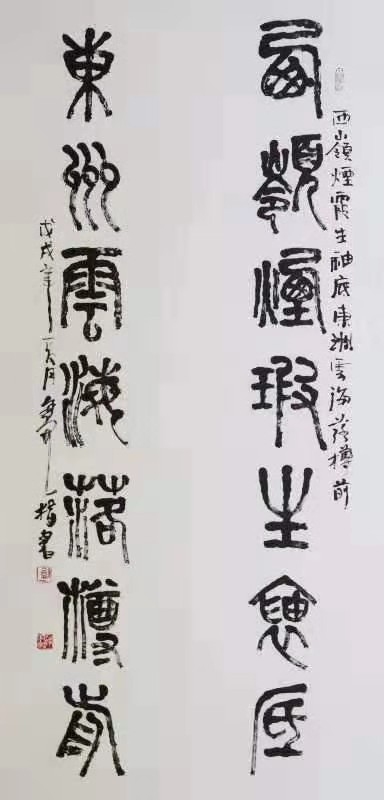 西嶺煙霞生袖底東洲雲海落樽前
西嶺煙瑕生袖底
東州雲海落樽前
戊戌年月指書